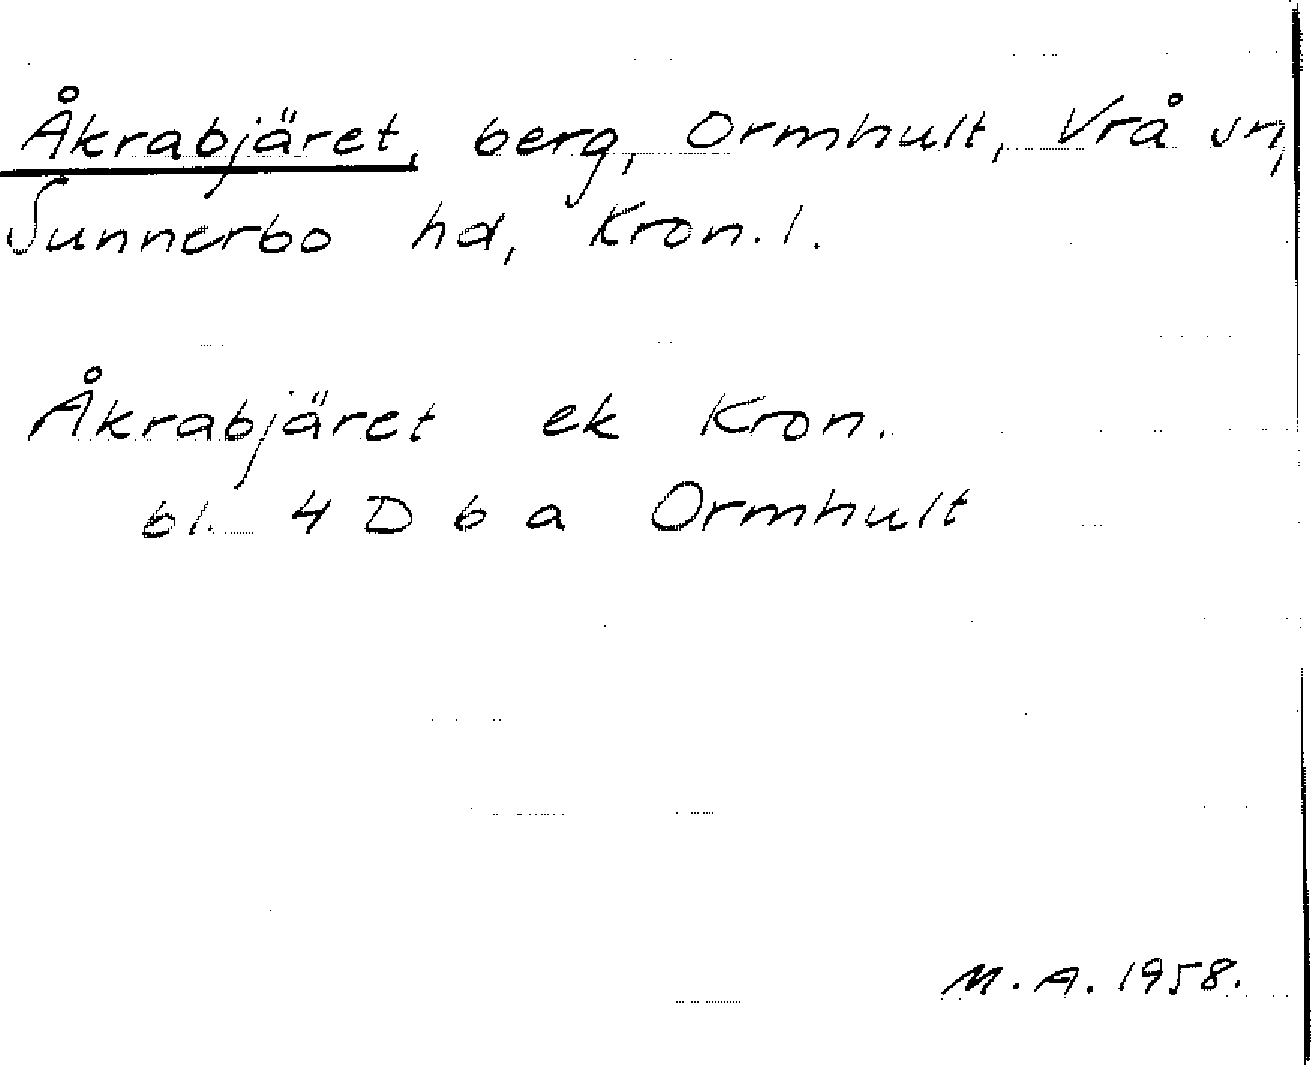 Åkrabjäret, berg, Ormhult, Vrå sn,
Sunnerbo hd, Kron. l.
Åkrabjäret ek Kron.
bl. 4 D 6 a Ormhult
M. A. 1958.